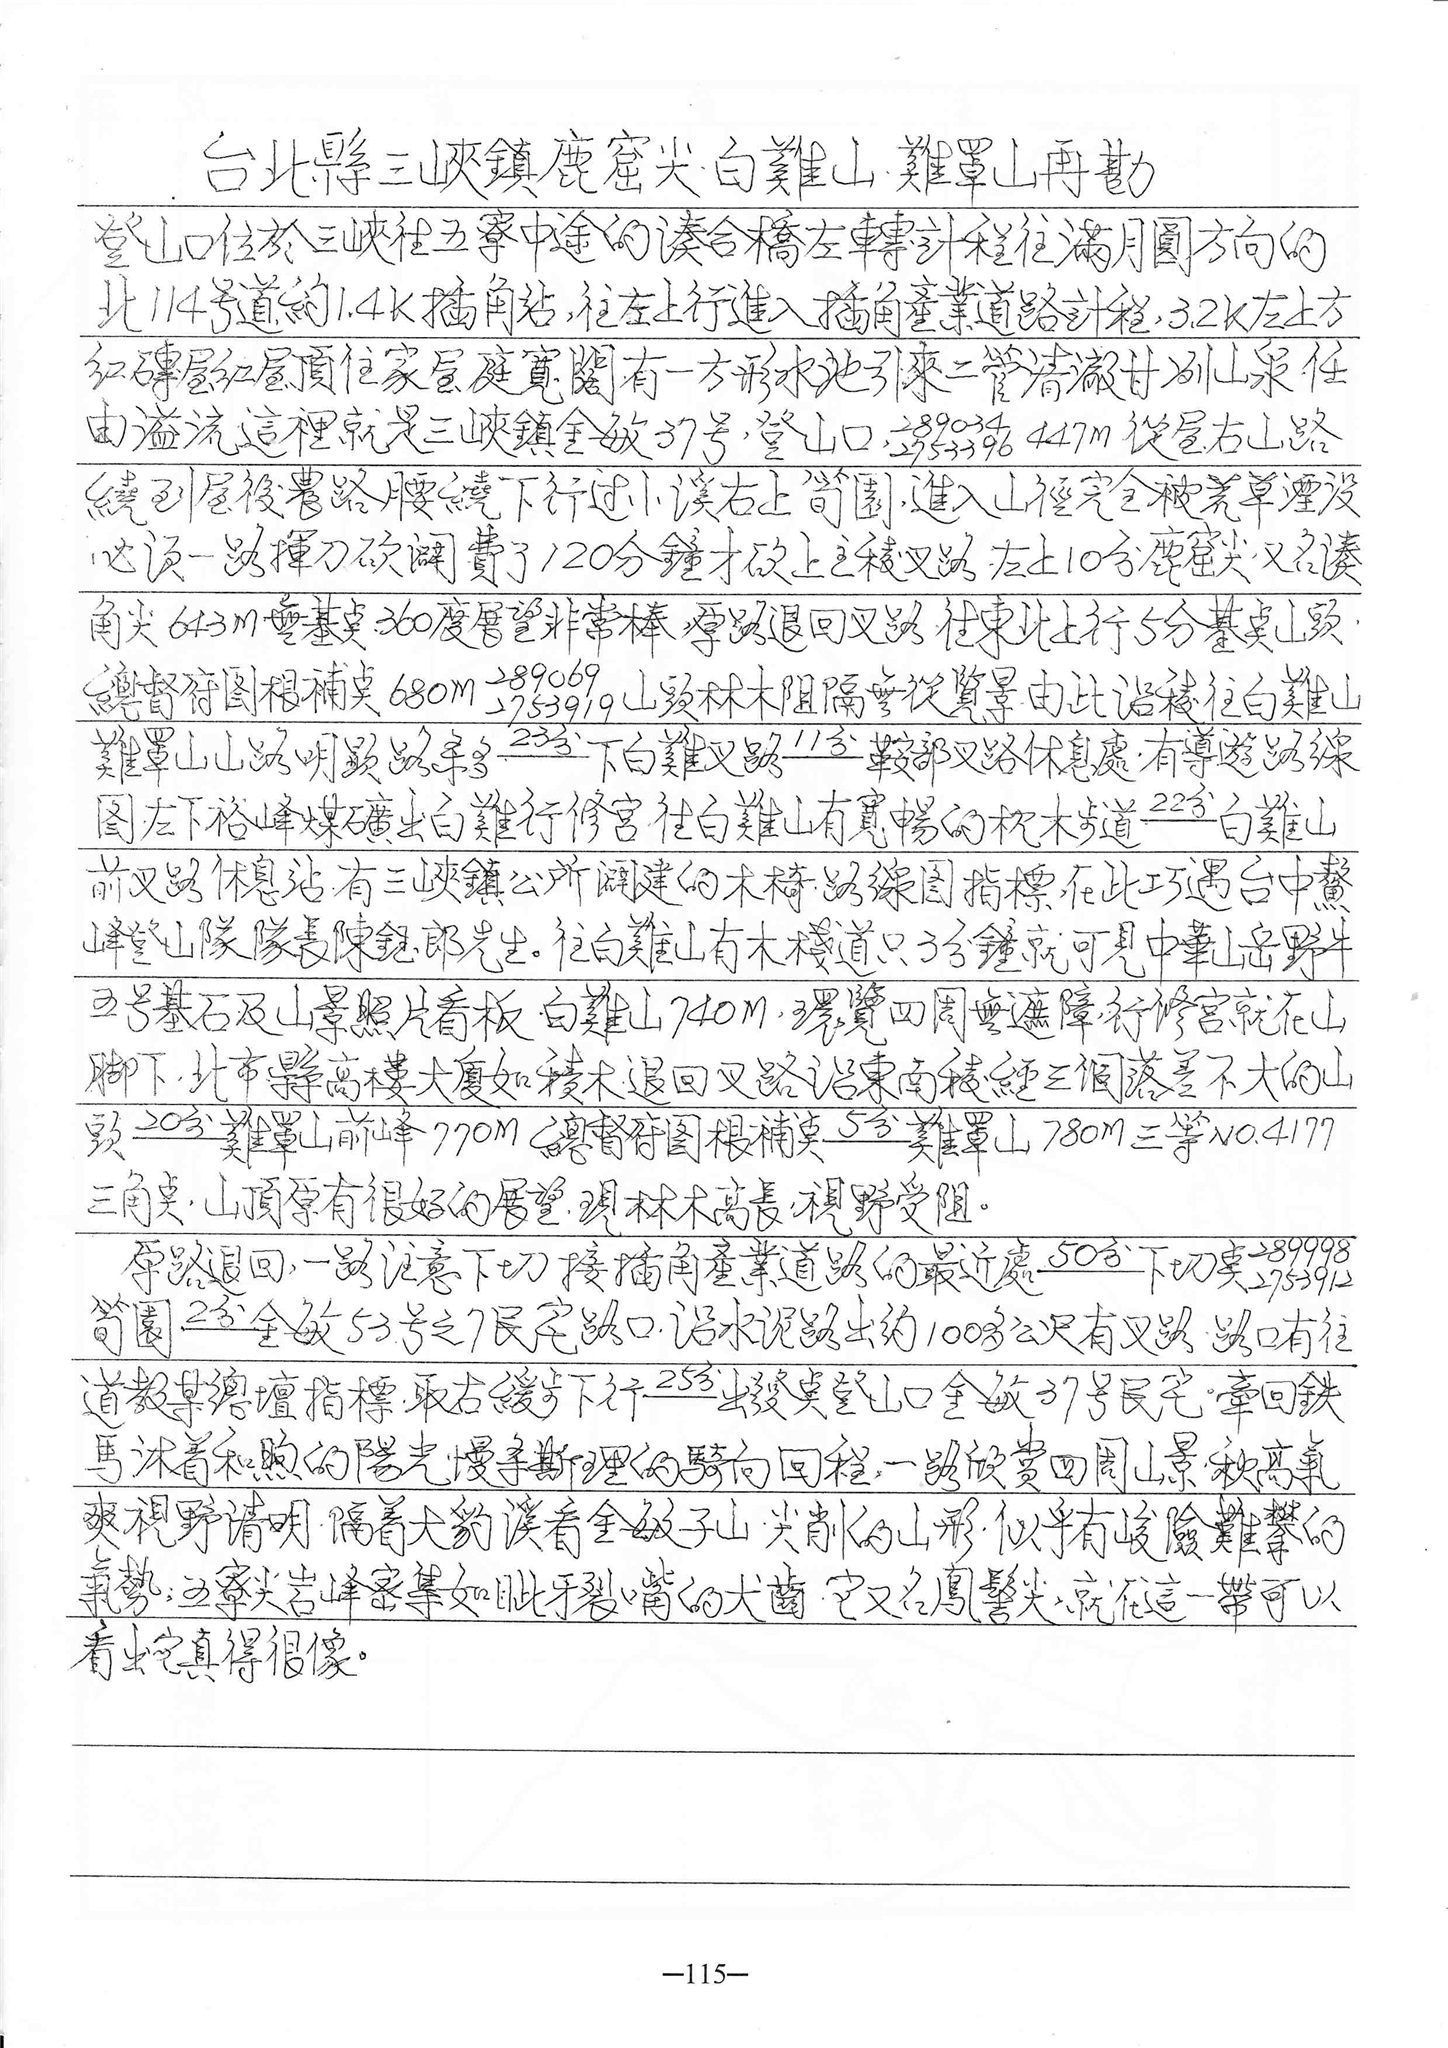 台北縣三峽鎮鹿窟尖.白雞山.雞罩山再勘
登山口位於三峽往五寮中途的湊合橋左轉計程往滿月圓方向的
北114号道約1.4K插角站,往左上行進入插角產業道路計程,3.2K左上方
紅磚屋紅屋頂住家屋庭寬闊有一方形水池引來二管清澈甘冽山泉任
由溢流這裡就是三峽鎮金敏37号,登山口,289034 2753396 447M從屋右山路
繞到屋後農路腰繞下行过小溪右上筍園,進入山徑完全被荒草湮沒
必須一路揮刀砍闢費了120分鐘才砍上主稜叉路.左上10分鹿窟尖.又名湊
角尖643M無基点.360度展望非常棒,原路退回叉路.往東北上行5分基点山頭.
總督府图根補点680M 289069 2753919山頭林木阻隔無從覽景.由此沿稜往白雞山
雞罩山山路明顯路条多 23分 下白雞叉路 11分 鞍部叉路休息處.有導遊路線
图.左下裕峰煤礦出白雞行修宮.往白雞山有寬暢的枕木步道 22分 白雞山
前叉路休息站.有三峽鎮公所闢建的木椅.路線图指標,在此巧遇台中鰲
峰登山隊隊長陳鈺郎先生。往白雞山有木棧道只3分鐘就可見中華山岳野牛
五号基石及山景照片看板.白雞山740M.環覽四周無遮障.行修宮就在山
腳下.北市縣高樓大廈如積木.退回叉路沿東南稜經三個落差不大的山
頭 20分 雞罩山前峰770M總督府图根補点 5分 雞罩山780M三等NO.4177
三角点.山頂原有很好的展望.現林木高長,視野受阻。
原路退回,一路注意下切接插角產業道路的最近處 50分 下切点289998 2753912
筍園 2分 金敏53号之7民宅路口.沿水泥路出約100多公尺有叉路.路口有往
道教某總壇指標.取右緩步下行 25分 出發点登山口金敏37号民宅.牽回鉄
馬沐着和煦的陽光.慢条斯理的騎向回程,一路欣賞四周山景.秋高氣
爽視野清明.隔着大豹溪看金敏子山.尖削的山形.似乎有峻險難攀的
氣勢;五寮尖岩峰密集如眦牙裂嘴的犬齒.它又名鳳髻尖,就在這一帶可以
看出它真得很像。
—115—